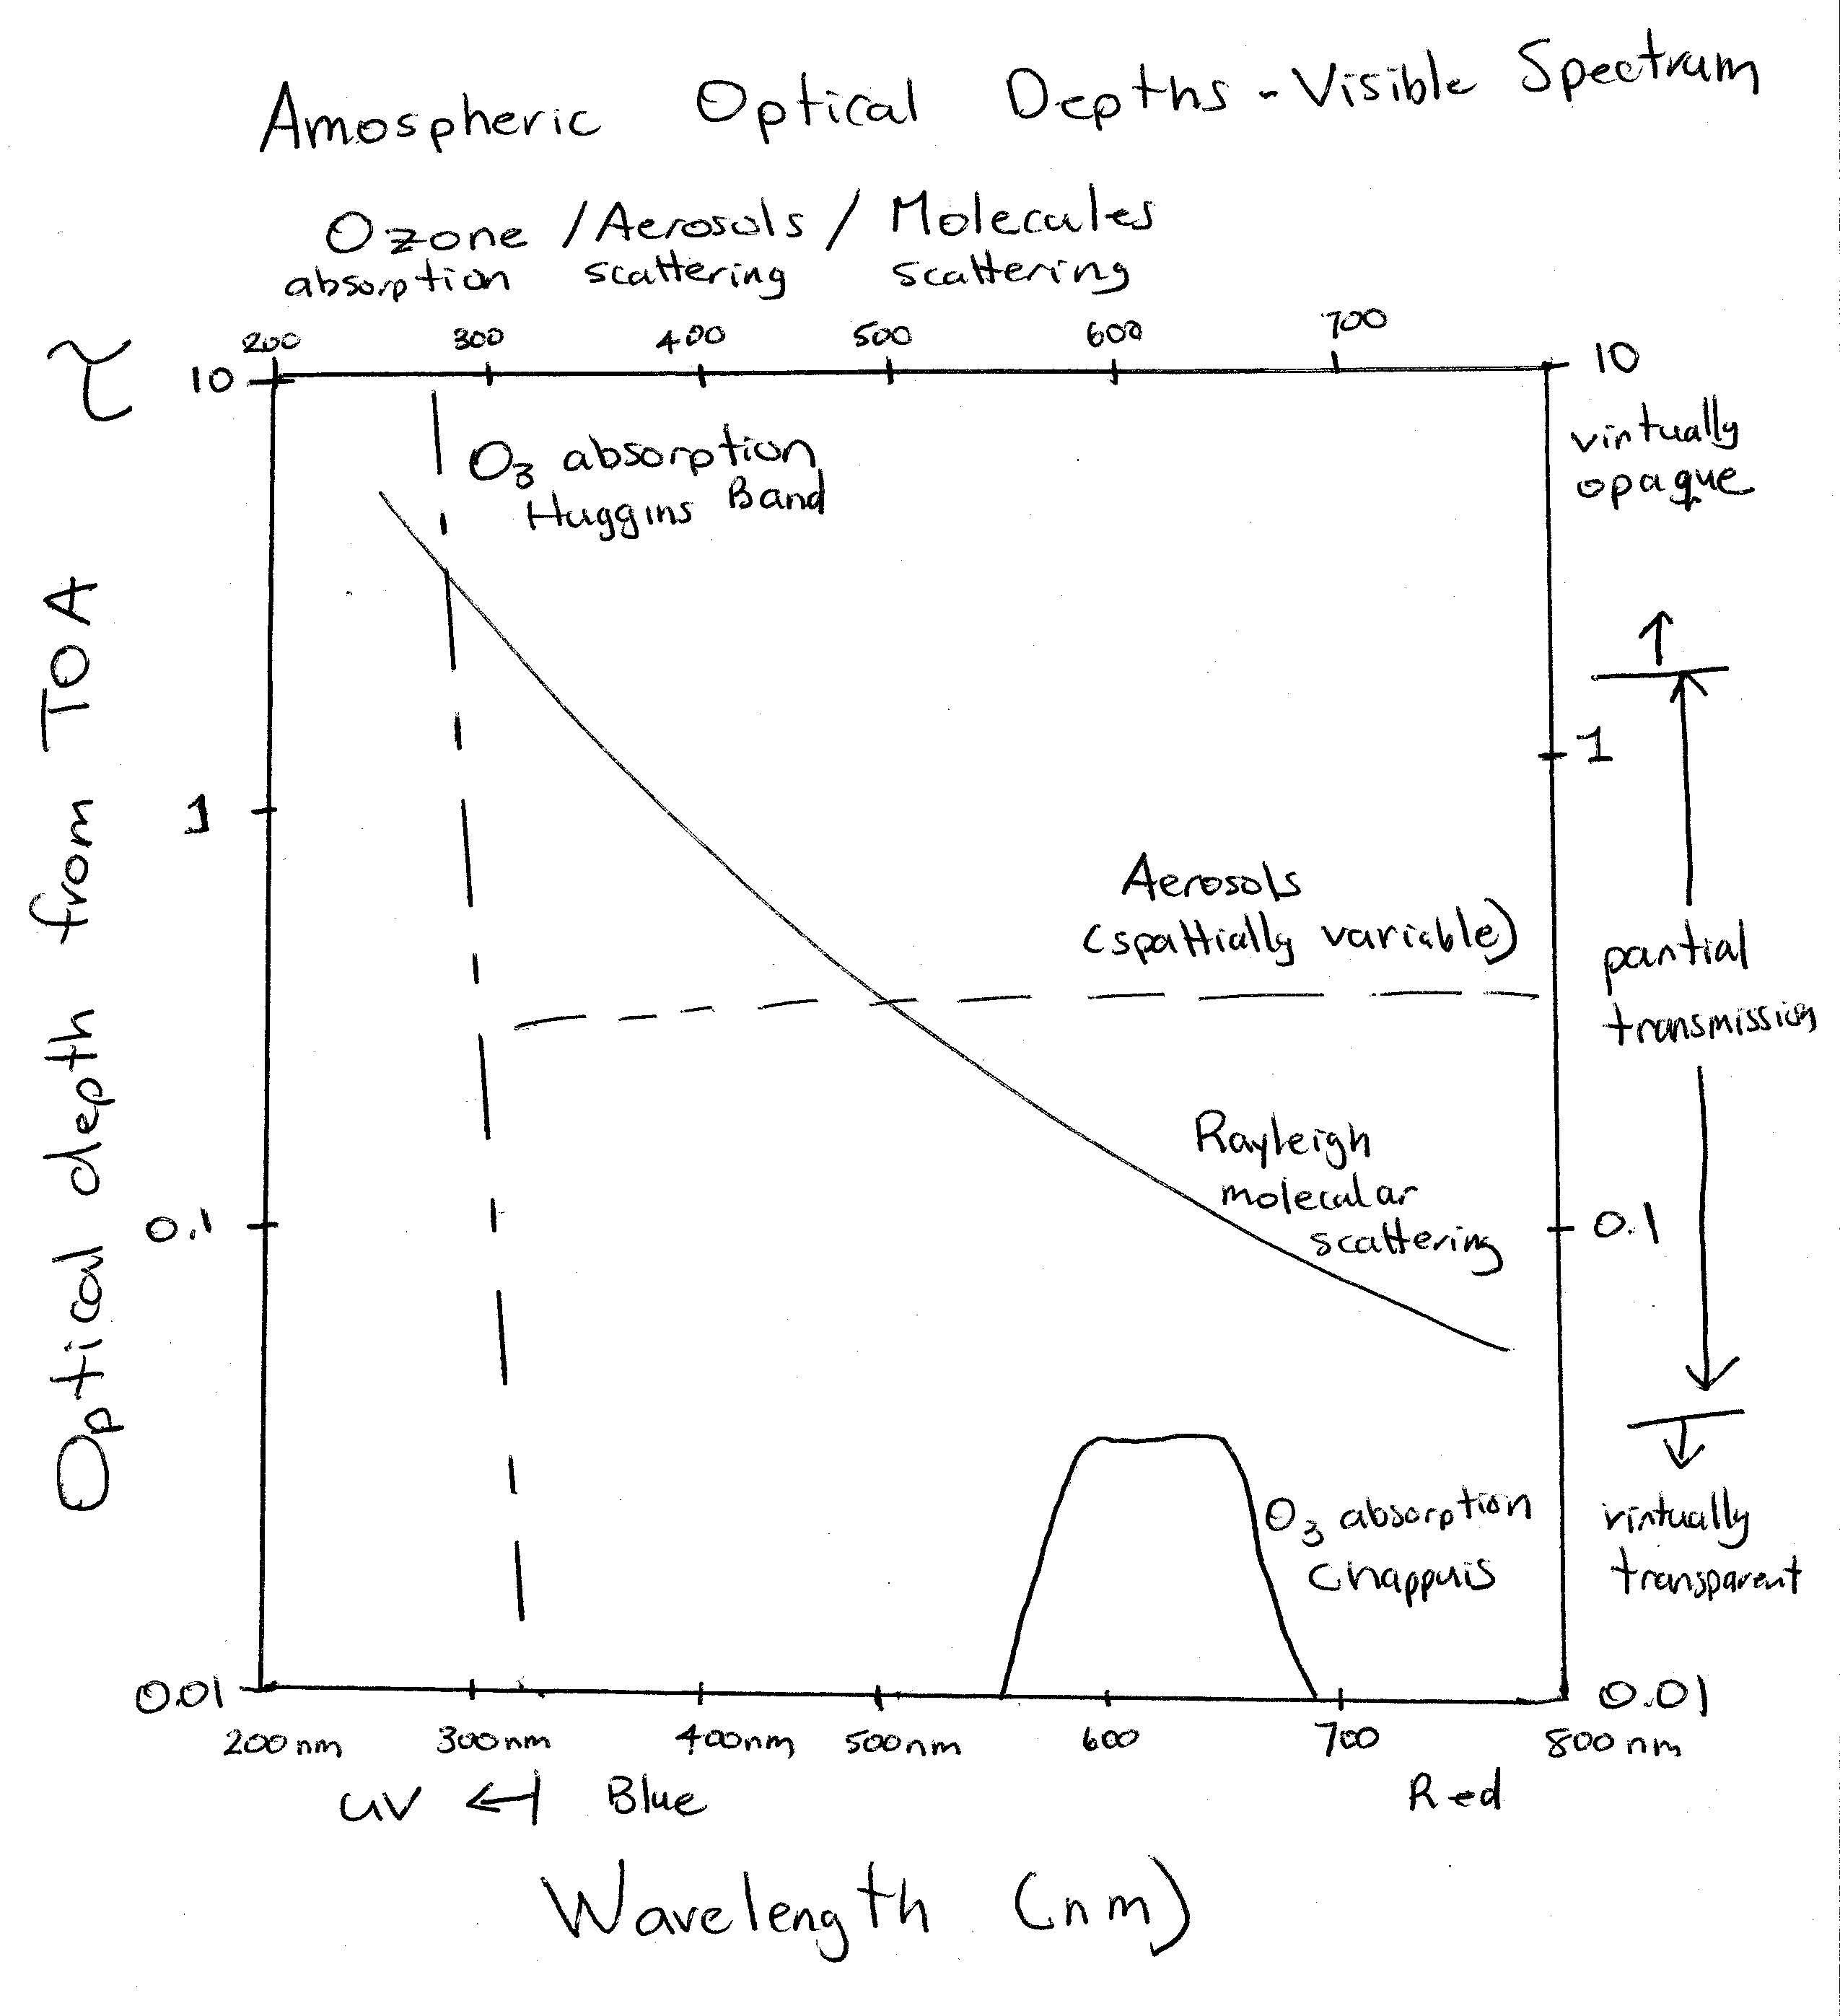 Amospheric Optical Depths - Visible Spectrum
Ozone / Aerosols / Molecules
absorption scattering scattering
200 300 400 500 600 700
τ
10
10
virtually
opaque
O3 absorption
Huggins Band
1
1
Aerosols
(spattially variable)
partial
transmission
Rayleigh
molecular
scattering
0.1
0.1
O3 absorption
Chappuis
virtually
transparent
0.01
0.01
200nm 300nm 400nm 500nm 600 700 800nm
UV ← Blue Red
Wavelength (nm)
Optical depth from TOA